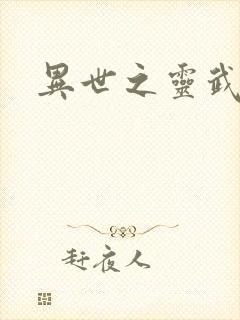 異世之靈武
赶夜人